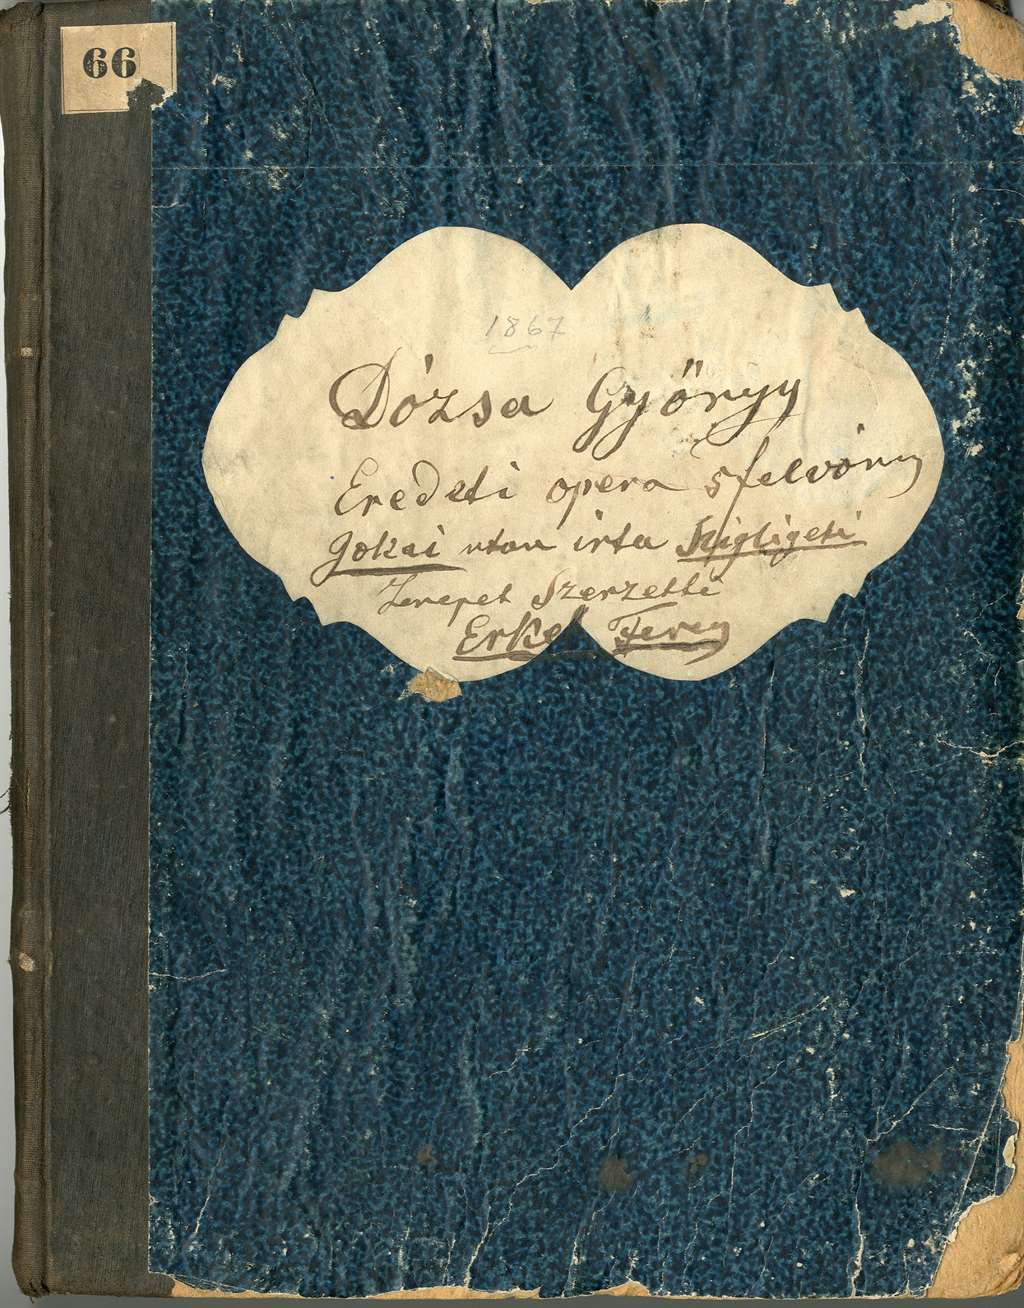 66
1867
Dózsa György
Eredeti opera 5 felvóny
Jokai utan irta Szigligeti
Zenejet Szerzette
Erkel Ferenz